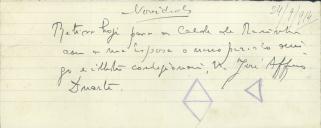 Novidades
24/9/914
Retirou hoje para as Caldas da Rainha
com a sua esposa o nosso presado ami-
go e illustre correligionario, Dr. José Affonso
Duarte.